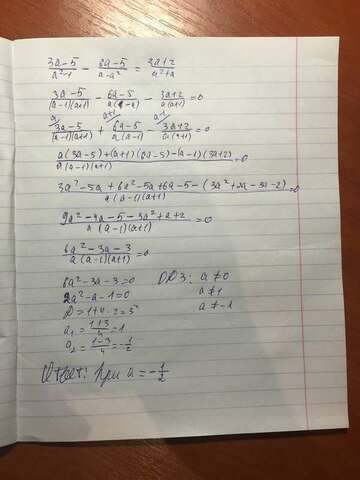 3a-5/a²-1 - 6a-5/a-a² = 3a+2/a²+a
3a-5/(a-1)(a+1) - 6a-5/a(1-a) - 3a+2/a(a+1) = 0
a a+1 a-1
3a-5/(a-1)(a+1) + 6a-5/a(a-1) - 3a+2/a(a+1) = 0
a(3a-5)+(a+1)(6a-5)-(a-1)(3a+2)/a(a-1)(a+1) = 0
3a²-5a+6a²-5a+6a-5-(3a²+2a-3a-2)/a(a-1)(a+1) = 0
9a²-4a-5-3a²+a+2/a(a-1)(a+1) = 0
6a²-3a-3/a(a-1)(a+1) = 0
6a²-3a-3=0 ОДЗ: a≠0
2a²-a-1=0 a≠1
D=1+4·2=3² a≠-1
a₁=1+3/4=1
a₂=1-3/4=-1/2
Ответ: при a=-1/2